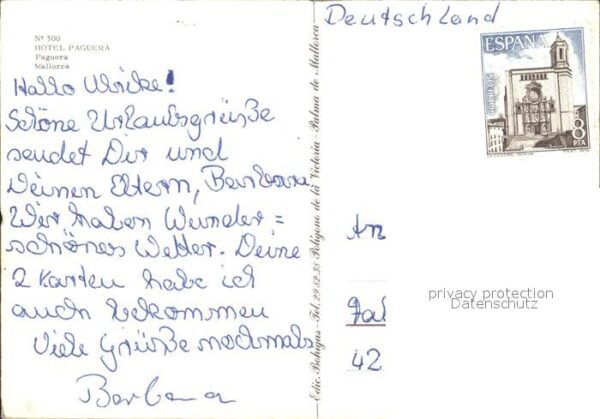 Nº 500
HOTEL PAGUERA
Paguera
Mallorca
Hallo Ulrike!
Schöne Urlaubsgrüße
sendet Dir und
Deinen Eltern, Barbara
Wir haben Wunder=
schönes Wetter. Deine
2 Karten habe ich
auch bekommen
Viele Grüße nochmals
Barbara
Edic. Bohigas - Tel. 29 32 38 Polígono de la Victoria Palma de Mallorca
Deutschland
ESPAÑA
CORREOS
8 PTA
An
privacy protection
Datenschutz
42